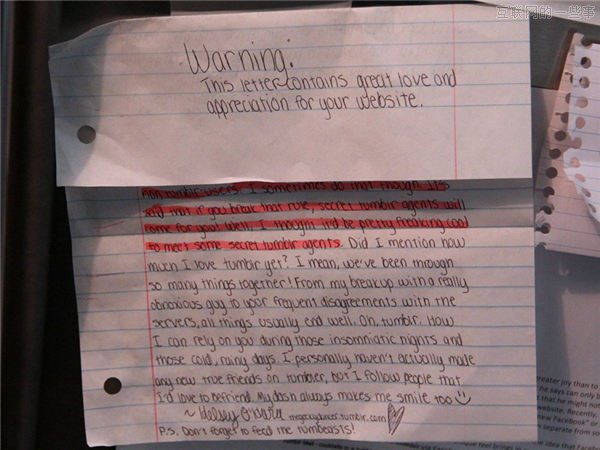 互联网的一些事
Warning:
This letter contains great love and
appreciation for your website.
non tumblr-users. I sometimes do that though. It's
said that if you break that rule, secret tumblr agents will
come for you! Well, I thought it'd be pretty freaking cool
to meet some secret tumblr agents. Did I mention how
much I love tumblr yet? I mean, we've been through
so many things together! From my breakup with a really
obnoxious guy to your frequent disagreements with the
servers, all things usually end well. Oh, tumblr. How
I can rely on you during those insomniatic nights and
those cold, rainy days. I personally haven't actually made
any new true friends on tumbler, but I follow people that
I'd love to befriend. My dash always makes me smile too
~ .tumblr.com
P.S. Don't forget to feed the tumbeasts!
greater joy than to
he says can only b
that he might not
website. Recently,
new Facebook" or
separate from so
que feel brings
the idea that Facebo